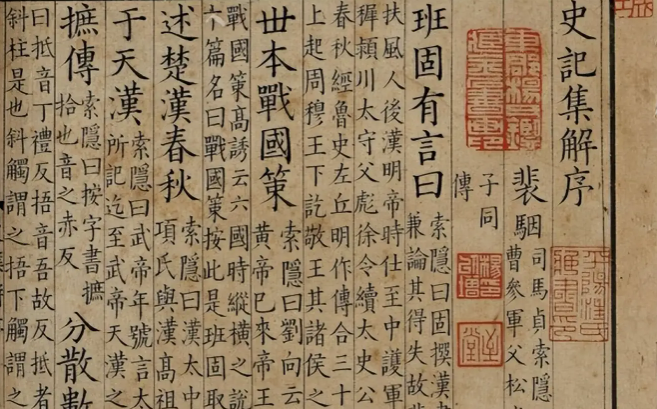 史記集解序
裴駰
司馬貞索隱
曹參軍父松
子同
傳
班固有言曰
索隱曰固撰漢
兼論其得失故
扶風人後漢明帝時仕至中護軍
穉潁川太守父彪徐令續太史公
春秋經魯史左丘明作傳合三十
上起周穆王下訖敬王其諸侯之
世本戰國策
索隱曰劉向云
黄帝已來帝王
戰國策高誘云六國時縱横之說
六篇名曰戰國策按此是班固取
述楚漢春秋
索隱曰漢太中
項氏與漢高祖
于天漢
索隱曰武帝年號言太
所記迄至武帝天漢之
摭傳
索隱曰按字書摭
拾也音之赤反
分散數
曰抵音丁禮反捂音吾故反抵者
斜柱是也斜觸謂之捂下觸謂之